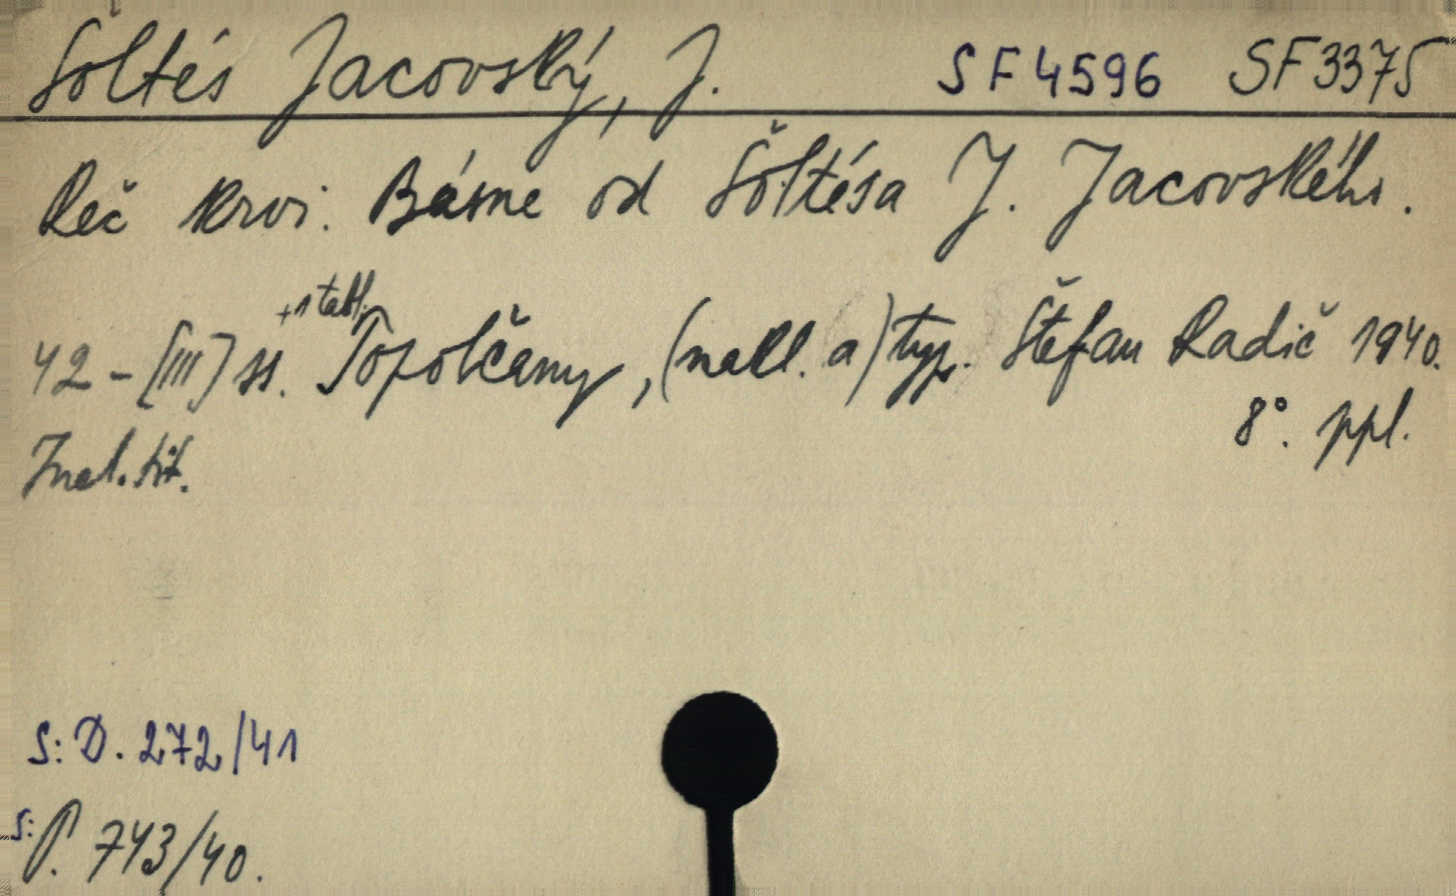 Šoltés Jacovský, J. SF4596 SF3375
Reč krvi. Básne od Šoltésa J. Jacovského.
+1 tabl.
42-[III] ss. Topoľčany, (nakl. a) typ. Štefan Radič 1940.
8°. ppl.
Incl. tit.
S: D. 272/41
S: P. 743/40.